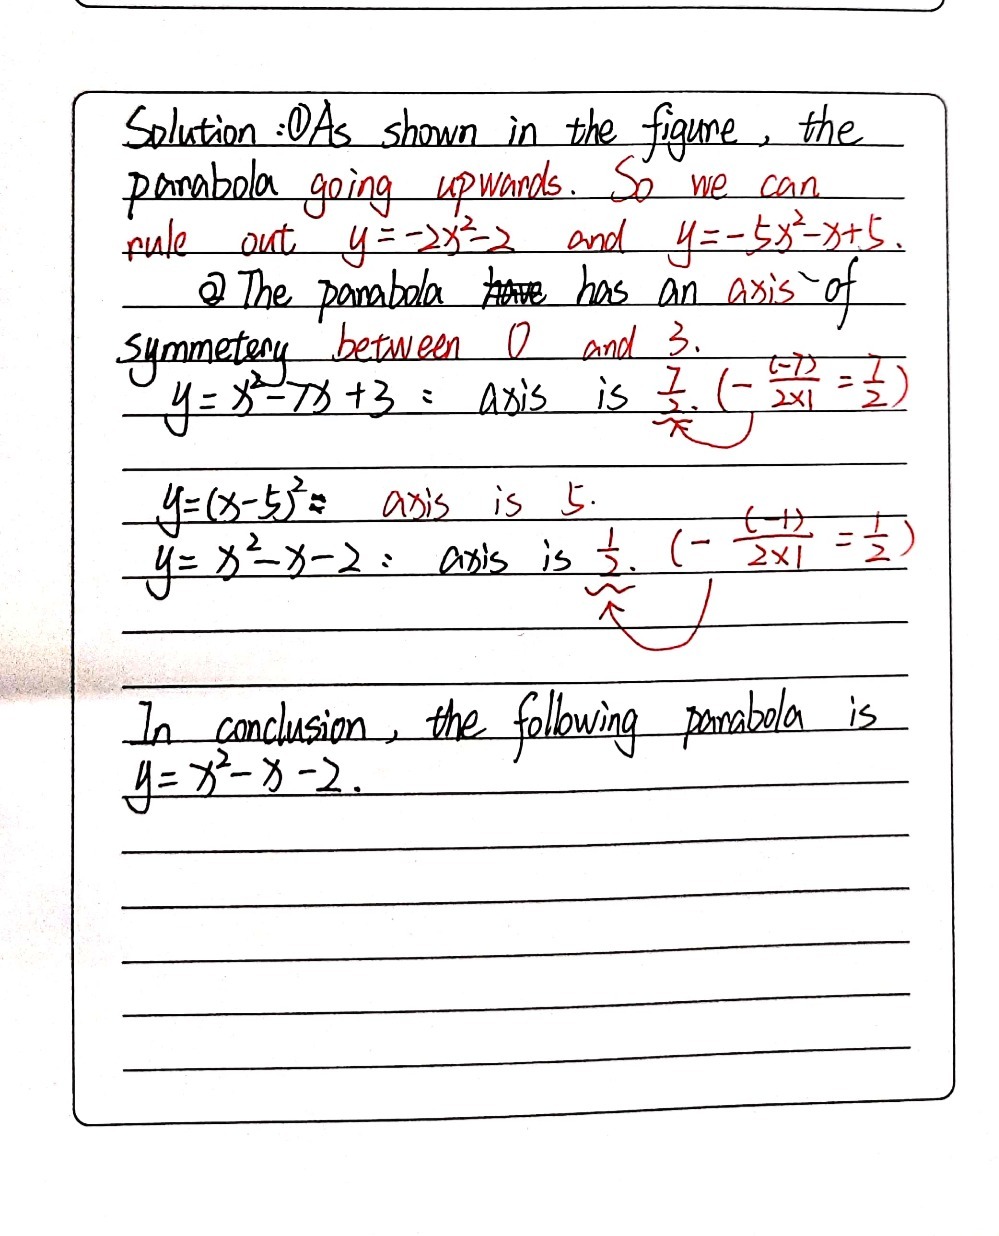 Solution :①As shown in the figure, the
parabola going upwards. So we can
rule out y=-2x²-2 and y=-5x²-x+5.
② The parabola have has an axis of
symmetery between 0 and 3.
y=x²-7x+3: axis is 7/2. (- (-7)/2×1 = 7/2)
y=(x-5)²: axis is 5.
y=x²-x-2: axis is 1/2. (- (-1)/2×1 = 1/2)
In conclusion, the following parabola is
y=x²-x-2.